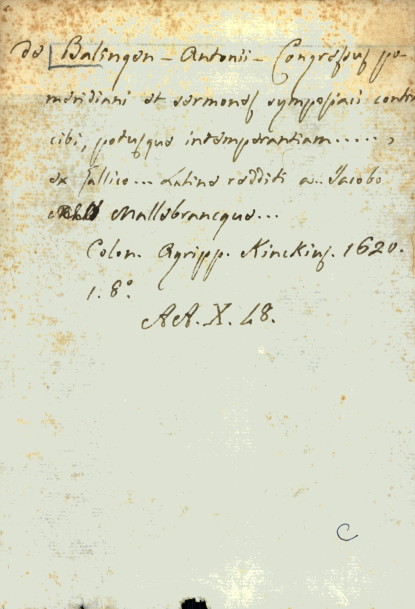 de Balingen - Antonii - Congressus po-
meridiani et sermones symposiaci contr
cibi, potusque intemperantiam.....,
ex gallico... Latine redditi a.. Jacobo
Mallebrancque...
Colon. Agripp. Kinckius. 1620.
1. 8º
AA. X. 48.
C